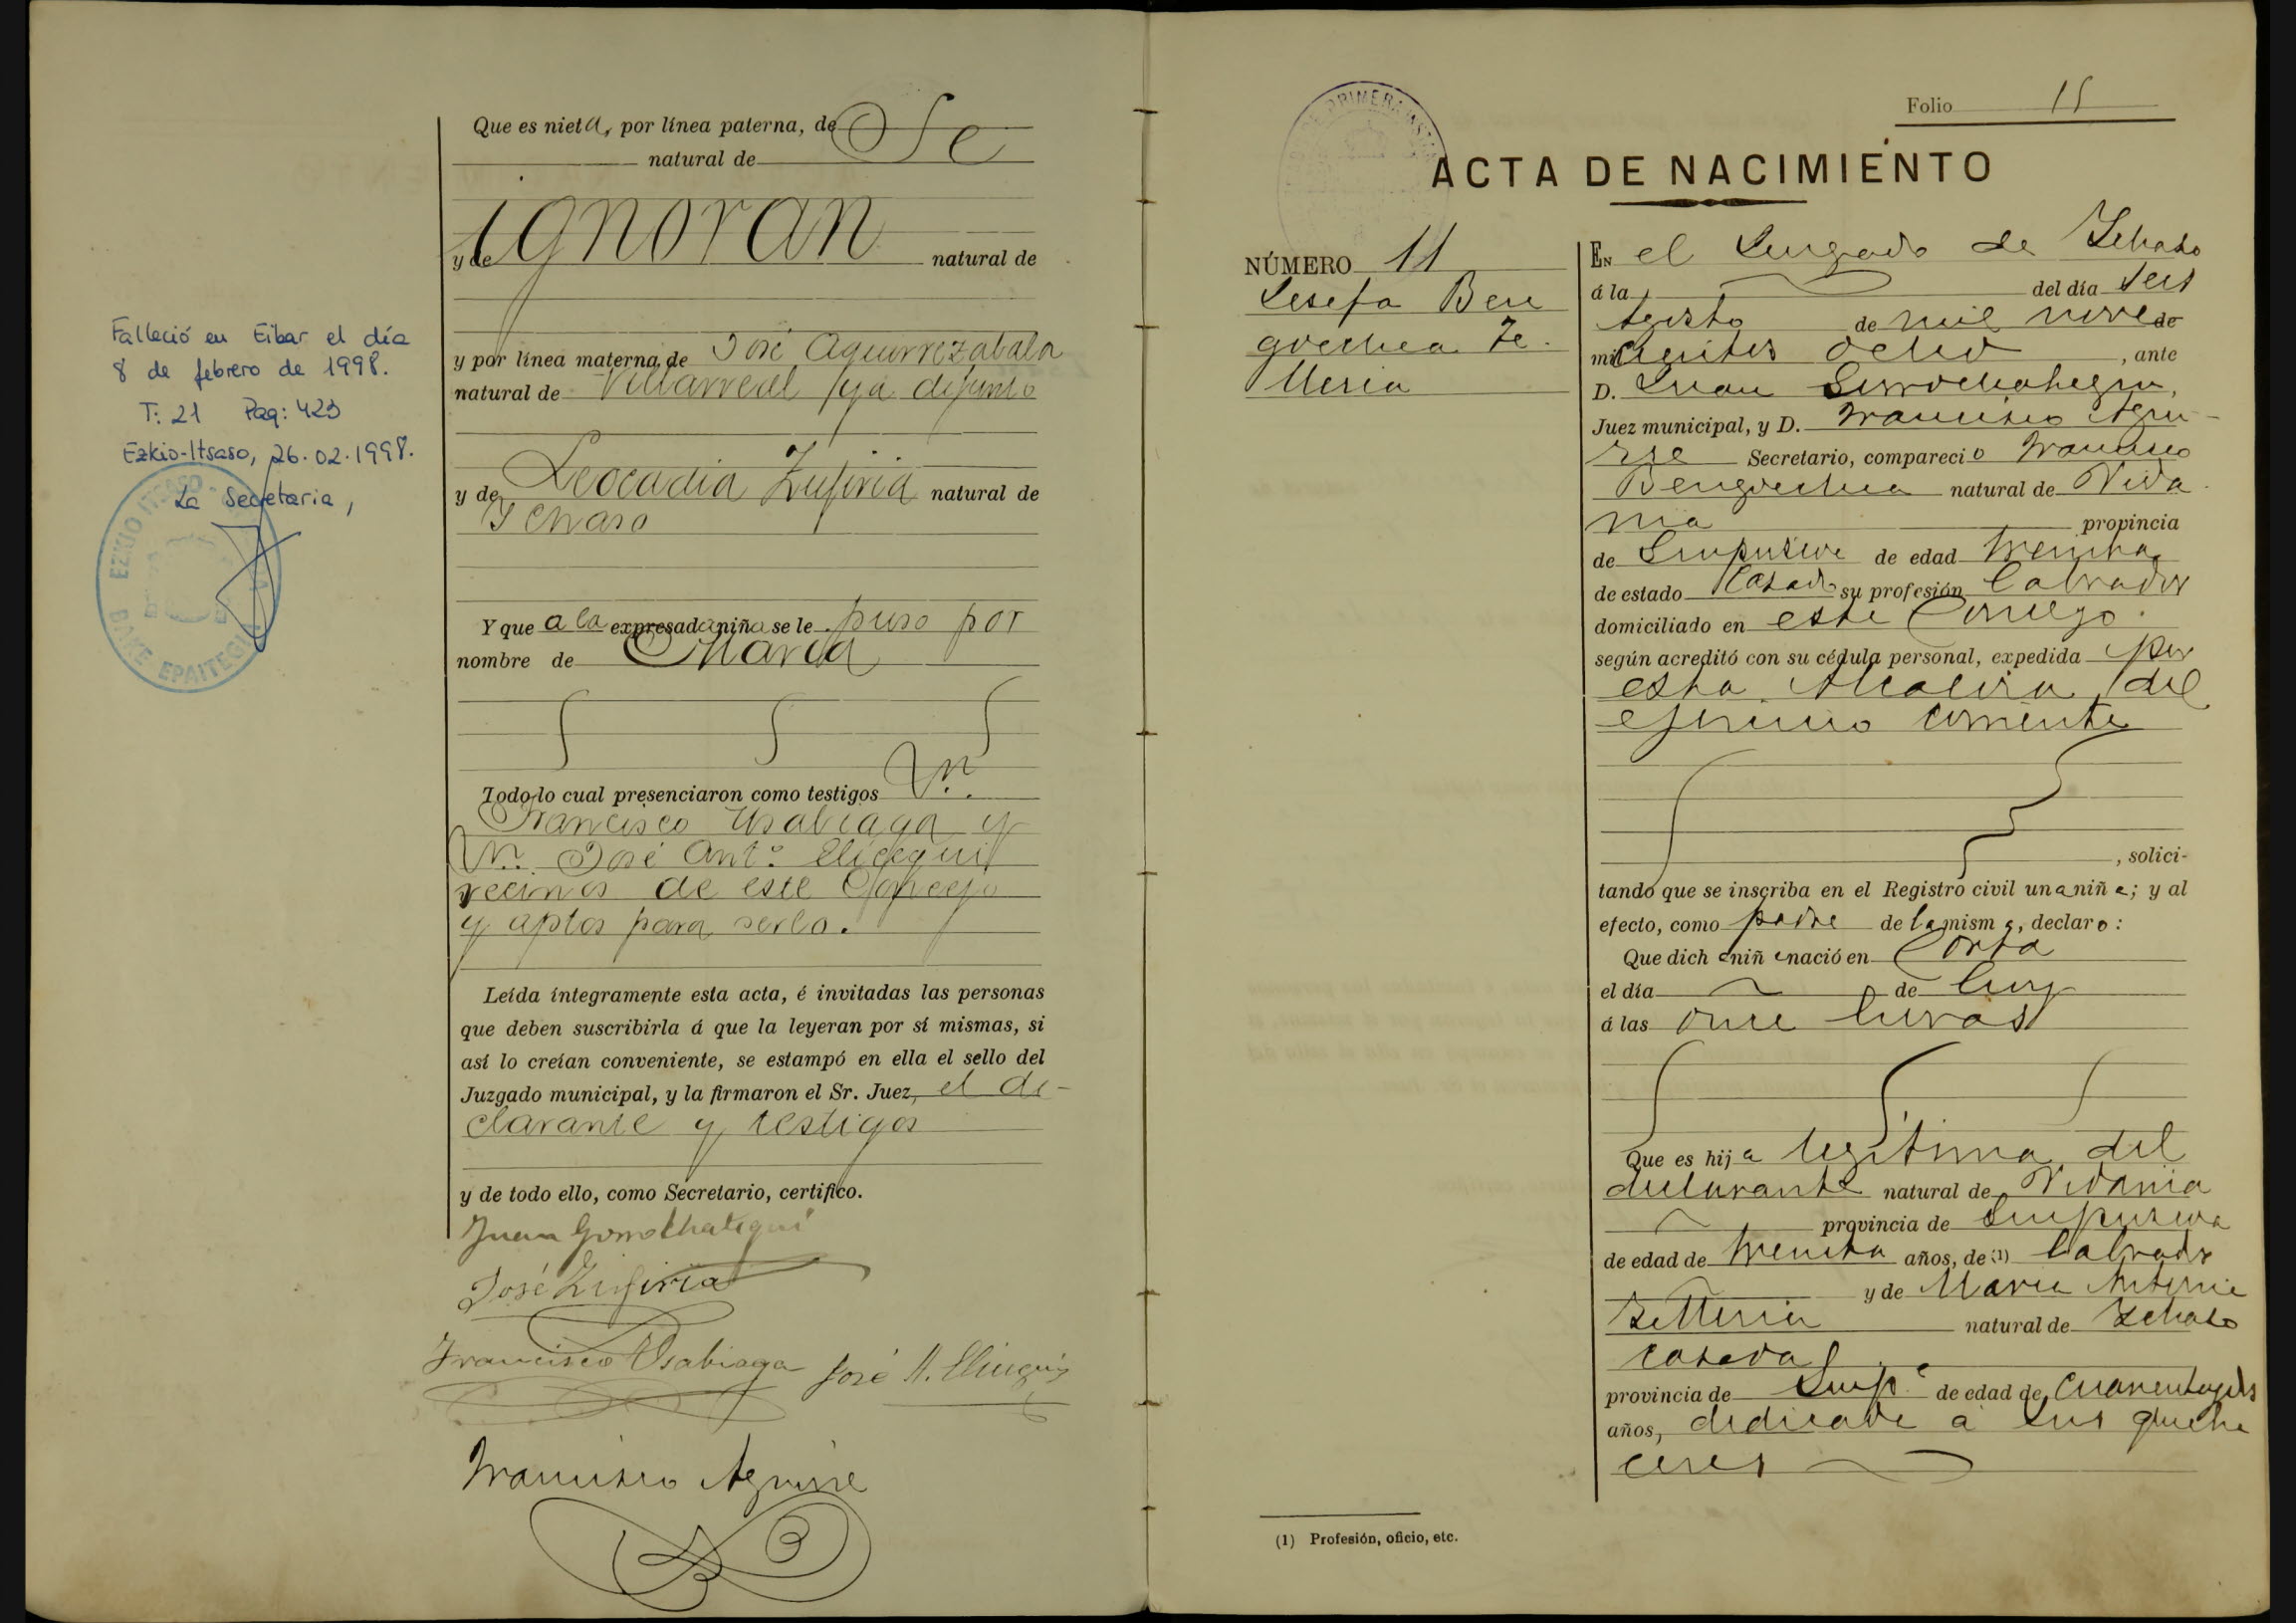 Que es nieta, por línea paterna, de Se
natural de
ignoran
y de natural de
y por línea materna, de José Aguirrezabala
natural de Villarreal ya difunto
y de Leocadia Zufiria natural de
Ichaso
Y que a la expresada niña se le puso por
nombre de María
Todo lo cual presenciaron como testigos D.
Francisco Usabiaga y
D. José Ant.º Elicegui
vecinos de este Concejo
y aptos para serlo.
Leída íntegramente esta acta, é invitadas las personas
que deben suscribirla á que la leyeran por sí mismas, si
así lo creían conveniente, se estampó en ella el sello del
Juzgado municipal, y la firmaron el Sr. Juez, el de-
clarante y testigos
y de todo ello, como Secretario, certifico.
Juan Gorrochategui
José Zufiria
Francisco Usabiaga José A.
Francisco Aguirre
Falleció en Eibar el día
8 de febrero de 1998.
T: 21 Pag: 423
Ezkio-Itsaso, 26.02.1998.
La Secretaria,
EZKIO ITSASO
BAKE EPAITEGIA
PRIMERA
Folio 15
ACTA DE NACIMIENTO
NÚMERO 11
Josefa Ben
goechea Te
lleria
EN el Juzgado de Ichaso
á la del día seis
Agosto de mil nove de
mil cientos ocho, ante
D. Juan Gorrochategui,
Juez municipal, y D. Francisco Agui-
rre Secretario, compareció Francisco
Bengoechea natural de Vida
nia propincia
de Guipuzcoa de edad treinta
de estado Casado su profesión labrador
domiciliado en este Concejo.
según acreditó con su cédula personal, expedida por
esta Alcaldia del
ejercicio corriente
, solici-
tando que se inscriba en el Registro civil una niña; y al
efecto, como padre de la misma, declaro:
Que dicha niña nació en
el día de hoy
á las once horas
Que es hija legitima del
declarante natural de Vidania
provincia de Guipuzcoa
de edad de treinta años, de (1) labrador
y de Maria Antonia
Telleria natural de Ichaso
casada
provincia de Guip.ª de edad de cuarenta y dos
años, dedicada a sus queha
ceres
(1) Profesión, oficio, etc.